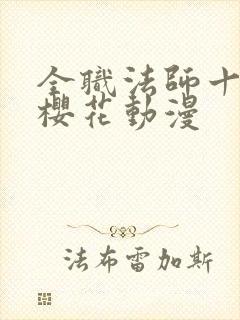 全職法師十
櫻花動漫
法布雷加斯